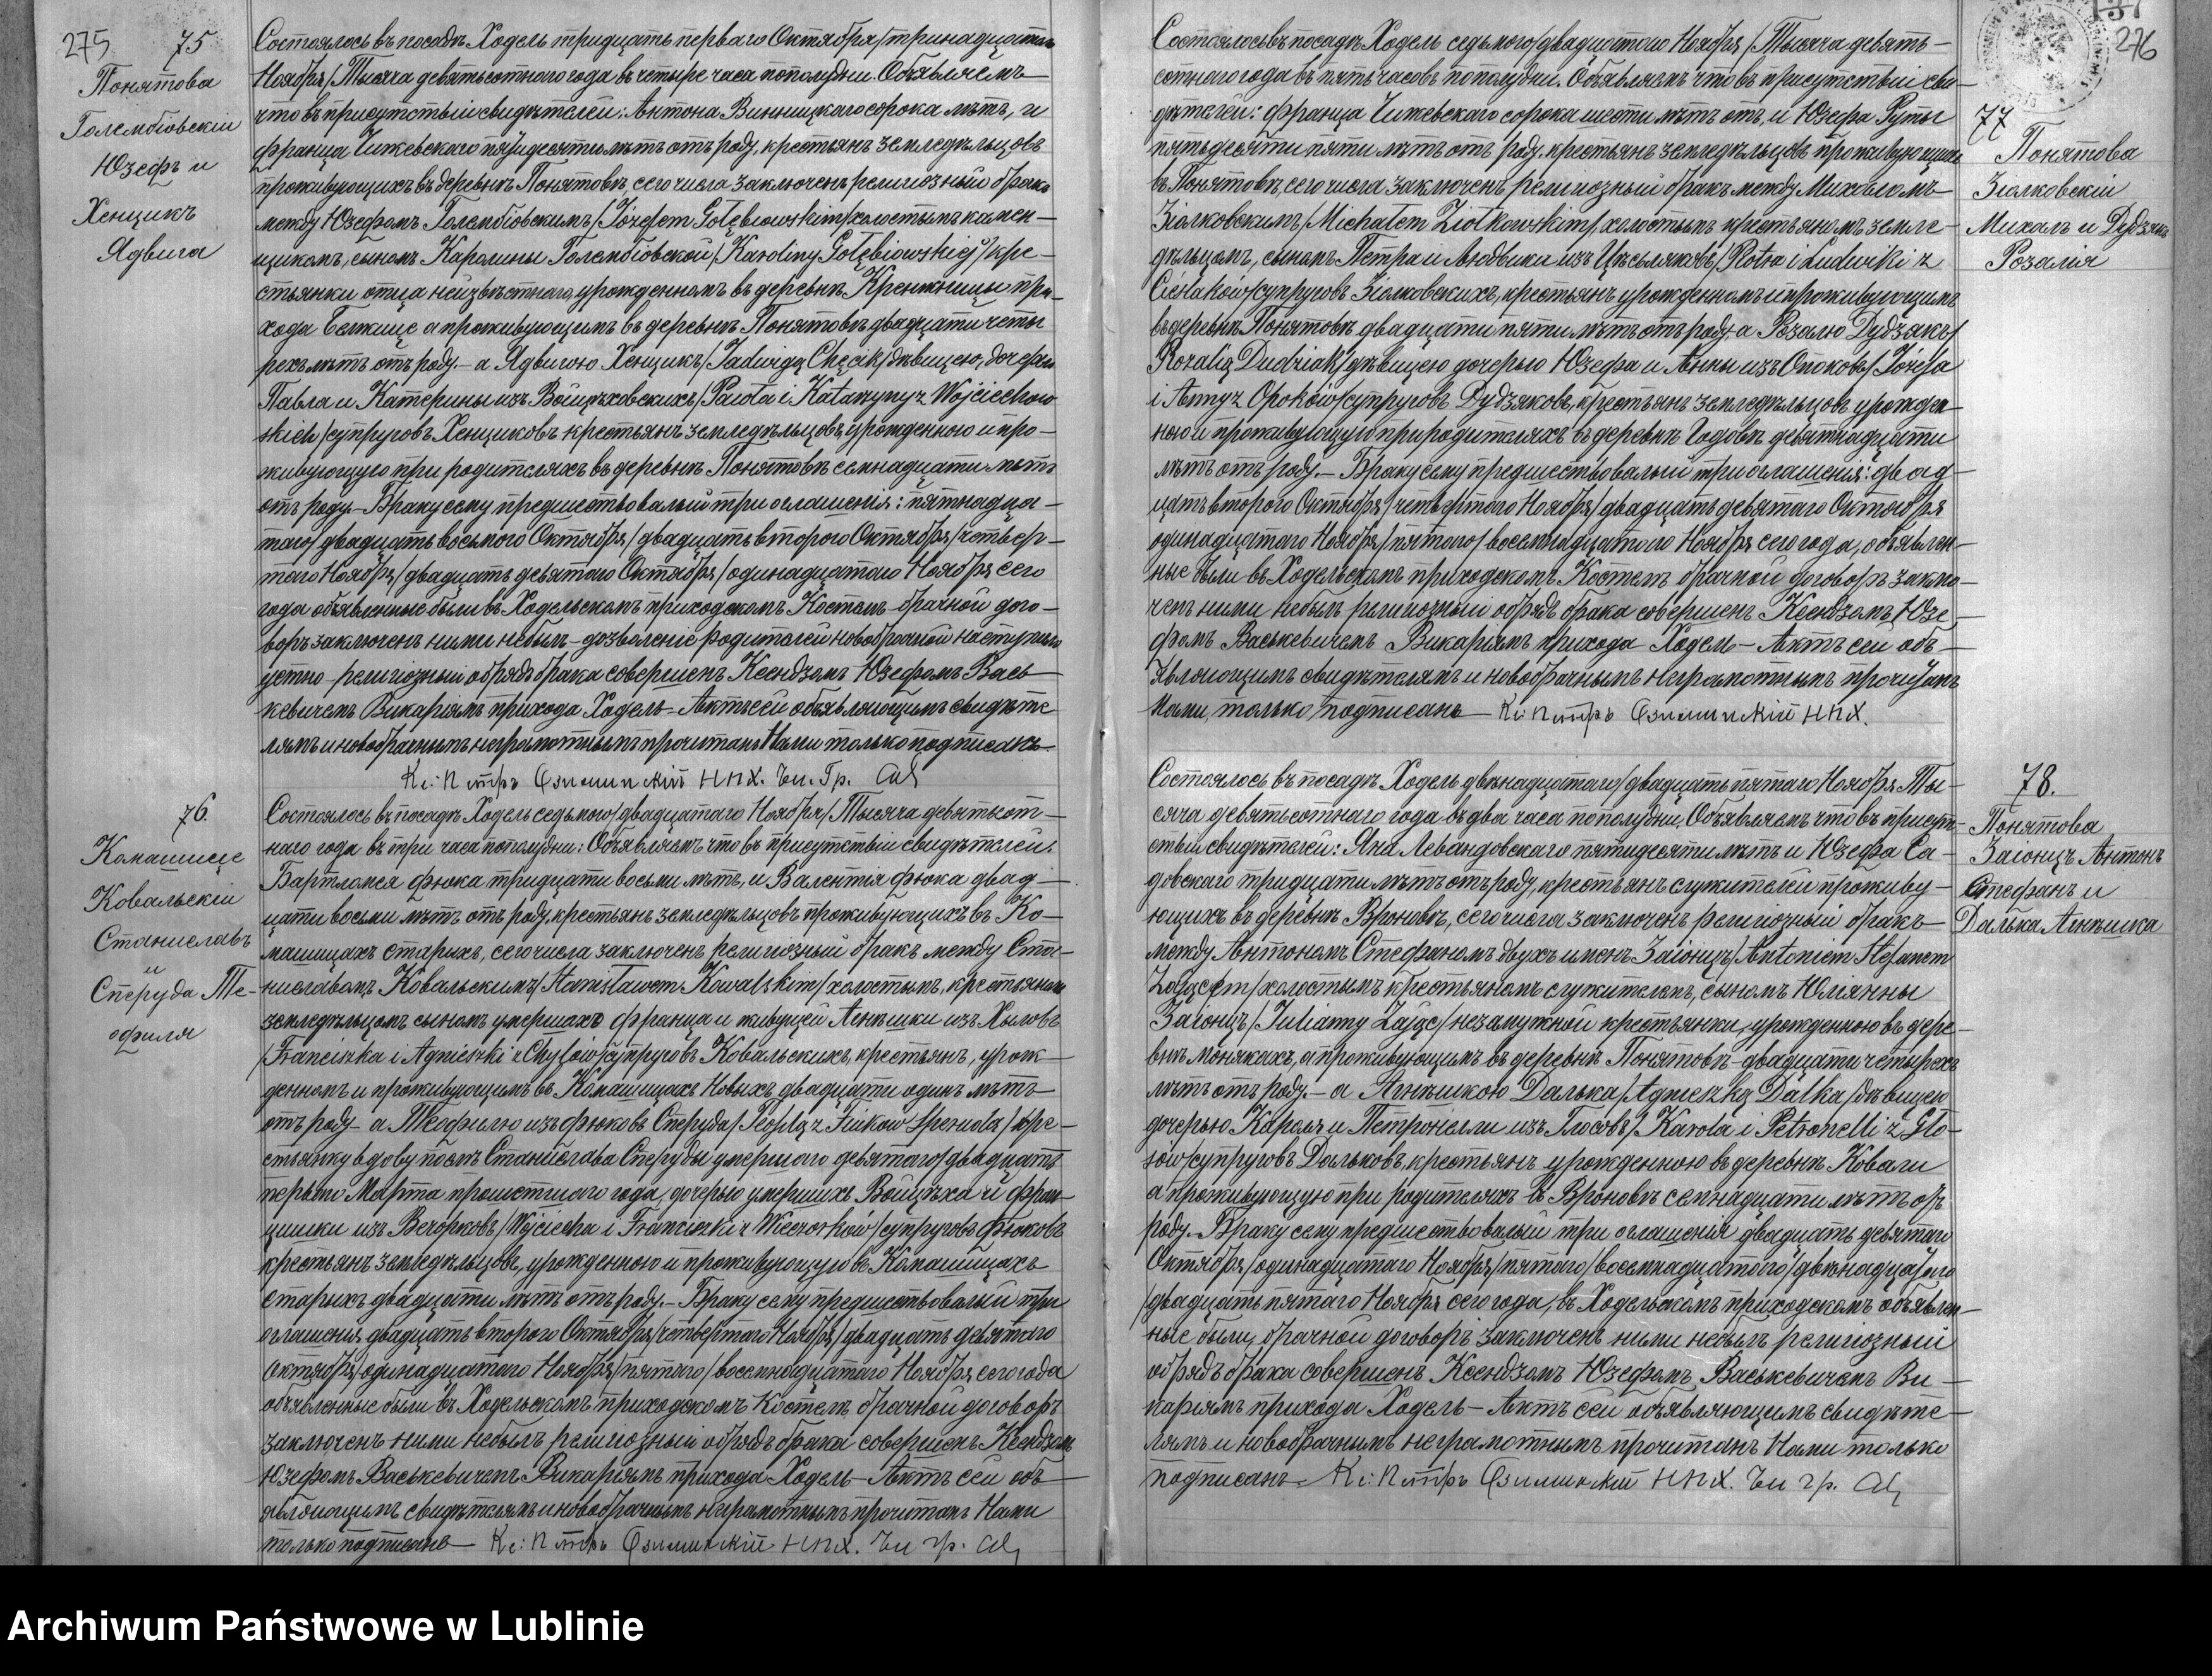 275
75
Понятова
Голембіовскій
Юзефъ и
Хенщикъ
Ядвига
Состоялось въ посадѣ Ходель тридцать перваго Октября/тринадцатаго
Ноября/Тысяча девятьсотнаго года въ четыре часа пополудни. Объявляемъ
что въ присутствіи свидѣтелей: Антона Винницкаго сорока лѣтъ, и
Франца Чижевскаго пятидесяти лѣтъ отъ роду, крестьянъ земледѣльцовъ
проживующихъ въ деревнѣ Понятовѣ, сего числа заключенъ религіозный бракъ
между Юзефомъ Голембіовскимъ/Józefem Gołębiowskim/холостымъ камен-
щикомъ, сыномъ Каролины Голембіовской/Karoliny Gołębiowskiej/кре-
стьянки отца неизвѣстнаго, урожденномъ въ деревнѣ Кренжницы при-
хода Белжице а проживующимъ въ деревнѣ Понятовѣ двадцати четы
рехъ лѣтъ отъ роду. - а Ядвигою Хенщикъ/Jadwigą Chęcik/дѣвицею, дочерью
Павла и Катерины изъ Войцѣховскихъ/Pawła i Katarzyny z Wojciechow
skich/супруговъ Хенщиковъ крестьянъ земледѣльцовъ, урожденною и про-
живующую при родителяхъ въ деревнѣ Понятовѣ семнадцати лѣтъ
отъ роду. - Браку сему предшествовалый три оглашенія: пятнадца-
таго/двадцать восьмого Октября/двадцать второго Октября/четвер-
таго Ноября/двадцать девятаго Октября/одинадцатаго Ноября сего
года объявленные были въ Ходельскомъ приходскомъ Костелѣ - брачной дого-
воръ заключенъ ними небылъ - дозволеніе родителей новобрачной наступило
устно - религіозный обрядъ брака совершенъ Ксендзомъ Юзефомъ Вась
кевичемъ Викаріямъ прихода Ходель - Актъ сей объявляющимъ свидѣте
лямъ и новобрачнымъ неграмотнымъ прочитанъ Нами только подписанъ
Кс: Петръ НПХ. Чи. Гр.
76.
Комашице
Ковальскій
Станиславъ
и
Сперуда Те-
офиля
Состоялось въ посадѣ Ходель седьмого/двадцатаго Ноября/Тысяча девятьсот-
наго года въ три часа пополудни: Объявляемъ что въ присутствіи свидѣтелей:
Бартломея Фюка тридцати восьми лѣтъ, и Валентія Фюка двад-
цати восьми лѣтъ отъ роду, крестьянъ земледѣльцовъ проживующихъ въ Ко-
машицахъ старыхъ, сего числа заключенъ религіозный бракъ между Ста-
ниславомъ Ковальскимъ/Stanisławem Kowalskim/холостымъ, крестьяниномъ
земледѣльцомъ сыномъ умершаго Франца и живущей Агнѣшки изъ Хыловъ
/Franciszka i Agnieszki z Chyłów/супруговъ Ковальскихъ, крестьянъ, урож-
денномъ и проживующимъ въ Комашицахъ Новыхъ двадцати одинъ лѣтъ
отъ роду - а Теофилю изъ Фюковъ Сперуда/Teofilą z Fiuków Speruda/кре-
стьянку вдову послѣ Станислава Сперуды умершаго девятаго/двадцать
перваго Марта прошлого года, дочерью умершихъ Войцѣха и Фран-
цишки изъ Вечорковъ/Wojciecha i Franciszki z Wieczorków/супруговъ Фюковъ
крестьянъ земледѣльцовъ, урожденною и проживующую въ Комашицахъ
старыхъ двадцати лѣтъ отъ роду. - Браку сему предшествовалый три
оглашенія двадцать второго Октября/четвертаго Ноября/двадцать девятаго
Октября/одинадцатаго Ноября/пятаго/восемнадцатаго Ноября сего года
объявленные были въ Ходельскомъ приходскомъ Костелѣ брачной договоръ
заключенъ ними небылъ религіозный обрядъ брака совершенъ Ксендзомъ
Юзефомъ Васькевичемъ Викаріямъ прихода Ходель - Актъ сей объ
являющимъ свидѣтелямъ и новобрачнымъ неграмотнымъ прочитанъ Нами
только подписанъ - Кс: Петръ НПХ. Чи гр.
137
276
Состоялось въ посадѣ Ходель седьмого/двадцатаго Ноября/Тысяча девять-
сотнаго года въ пять часовъ пополудни. Объявляемъ что въ присутствіи сви-
дѣтелей: Франца Чижевскаго сорока шести лѣтъ отъ, и Юзефа Руты
пятьдесяти пяти лѣтъ отъ роду, крестьянъ земледѣльцовъ проживующихъ
въ Понятовѣ, сего числа заключенъ религіозный бракъ между Михаломъ
Зіолковскимъ/Michałem Ziołkowskim/холостымъ крестьяномъ земле-
дѣльцомъ, сыномъ Петра и Людвики изъ Цѣсьляковъ/Piotra i Ludwiki z
Cieślaków/супруговъ Зіолковскихъ, крестьянъ урожденномъ и проживующимъ
въ деревнѣ Понятовѣ двадцати пяти лѣтъ отъ роду, а Розалію Дудзякъ/
Rozalią Dudziak/дѣвицею дочерью Юзефа и Анны изъ Опоковъ/Józefa
i Anny z Opoków/супруговъ Дудзяковъ, крестьянъ земледѣльцовъ урожден
ною и проживующую при родителяхъ въ деревнѣ Годовѣ девятнадцати
лѣтъ отъ роду. - Браку сему предшествовалый три оглашенія: двад-
цать второго Октября/четвертаго Ноября/двадцать девятаго Октября
одинадцатаго Ноября/пятаго/восемнадцатаго Ноября сего года, объявлен-
ные были въ Ходельскомъ приходскомъ Костелѣ брачной договоръ заклю-
ченъ ними небылъ религіозный обрядъ брака совершенъ Ксендзомъ Юзе-
фомъ Васькевичемъ Викаріямъ прихода Ходель - Актъ сей объ-
являющимъ свидѣтелямъ и новобрачнымъ неграмотнымъ прочитанъ
Нами, только подписанъ - Кс: Петръ НПХ.
77
Понятова
Зіолковскій
Михалъ и Дудзякъ
Розалія
Состоялось въ посадѣ Ходель двѣнадцатаго/двадцать пятаго Ноября Ты-
сяча девятьсотнаго года въ два часа пополудни, Объявляемъ что въ присут-
ствіи свидѣтелей: Яна Левандовскаго пятидесяти лѣтъ и Юзефа Са-
довскаго тридцати лѣтъ отъ роду, крестьянъ служителей проживу-
ющихъ въ деревнѣ Вроновѣ, сего числа заключенъ религіозный бракъ
между Антономъ Стефаномъ двухъ именъ Заіонцъ/Antonim Stefanem
Zającem/холостымъ крестьяномъ служителемъ, сыномъ Юліянны
Заіонцъ/Julianny Zając/незамужной крестьянки, урожденною въ дере-
внѣ Монякахъ, а проживующимъ въ деревнѣ Понятовѣ - двадцати четырехъ
лѣтъ отъ роду. - а Агнѣшкою Далька/Agnieszką Dalka/дѣвицею
дочерью Кароля и Петронелли изъ Глосовъ/Karola i Petronelli z Gło-
sów/супруговъ Дальковъ, крестьянъ урожденною въ деревнѣ Ковали
а проживующую при родителяхъ въ Вроновѣ семнадцати лѣтъ отъ
роду. - Браку сему предшествовалый три оглашенія двадцать девятаго
Октября/одинадцатаго Ноября/пятаго/восемнадцатаго/двѣнадцатаго
/двадцать пятаго Ноября сего года, въ Ходельскомъ приходскомъ объявлен-
ные были, брачной договоръ заключенъ ними небылъ религіозный
обрядъ брака совершенъ Ксендзомъ Юзефомъ Васькевичемъ Ви-
каріямъ прихода Ходель - Актъ сей объявляющимъ свидѣте-
лямъ и новобрачнымъ неграмотнымъ прочитанъ Нами только
подписанъ - Кс: Петръ НПХ. Чи гр.
78.
Понятова
Заіонцъ Антонъ
Стефанъ и
Далька Агнѣшка
Archiwum Państwowe w Lublinie